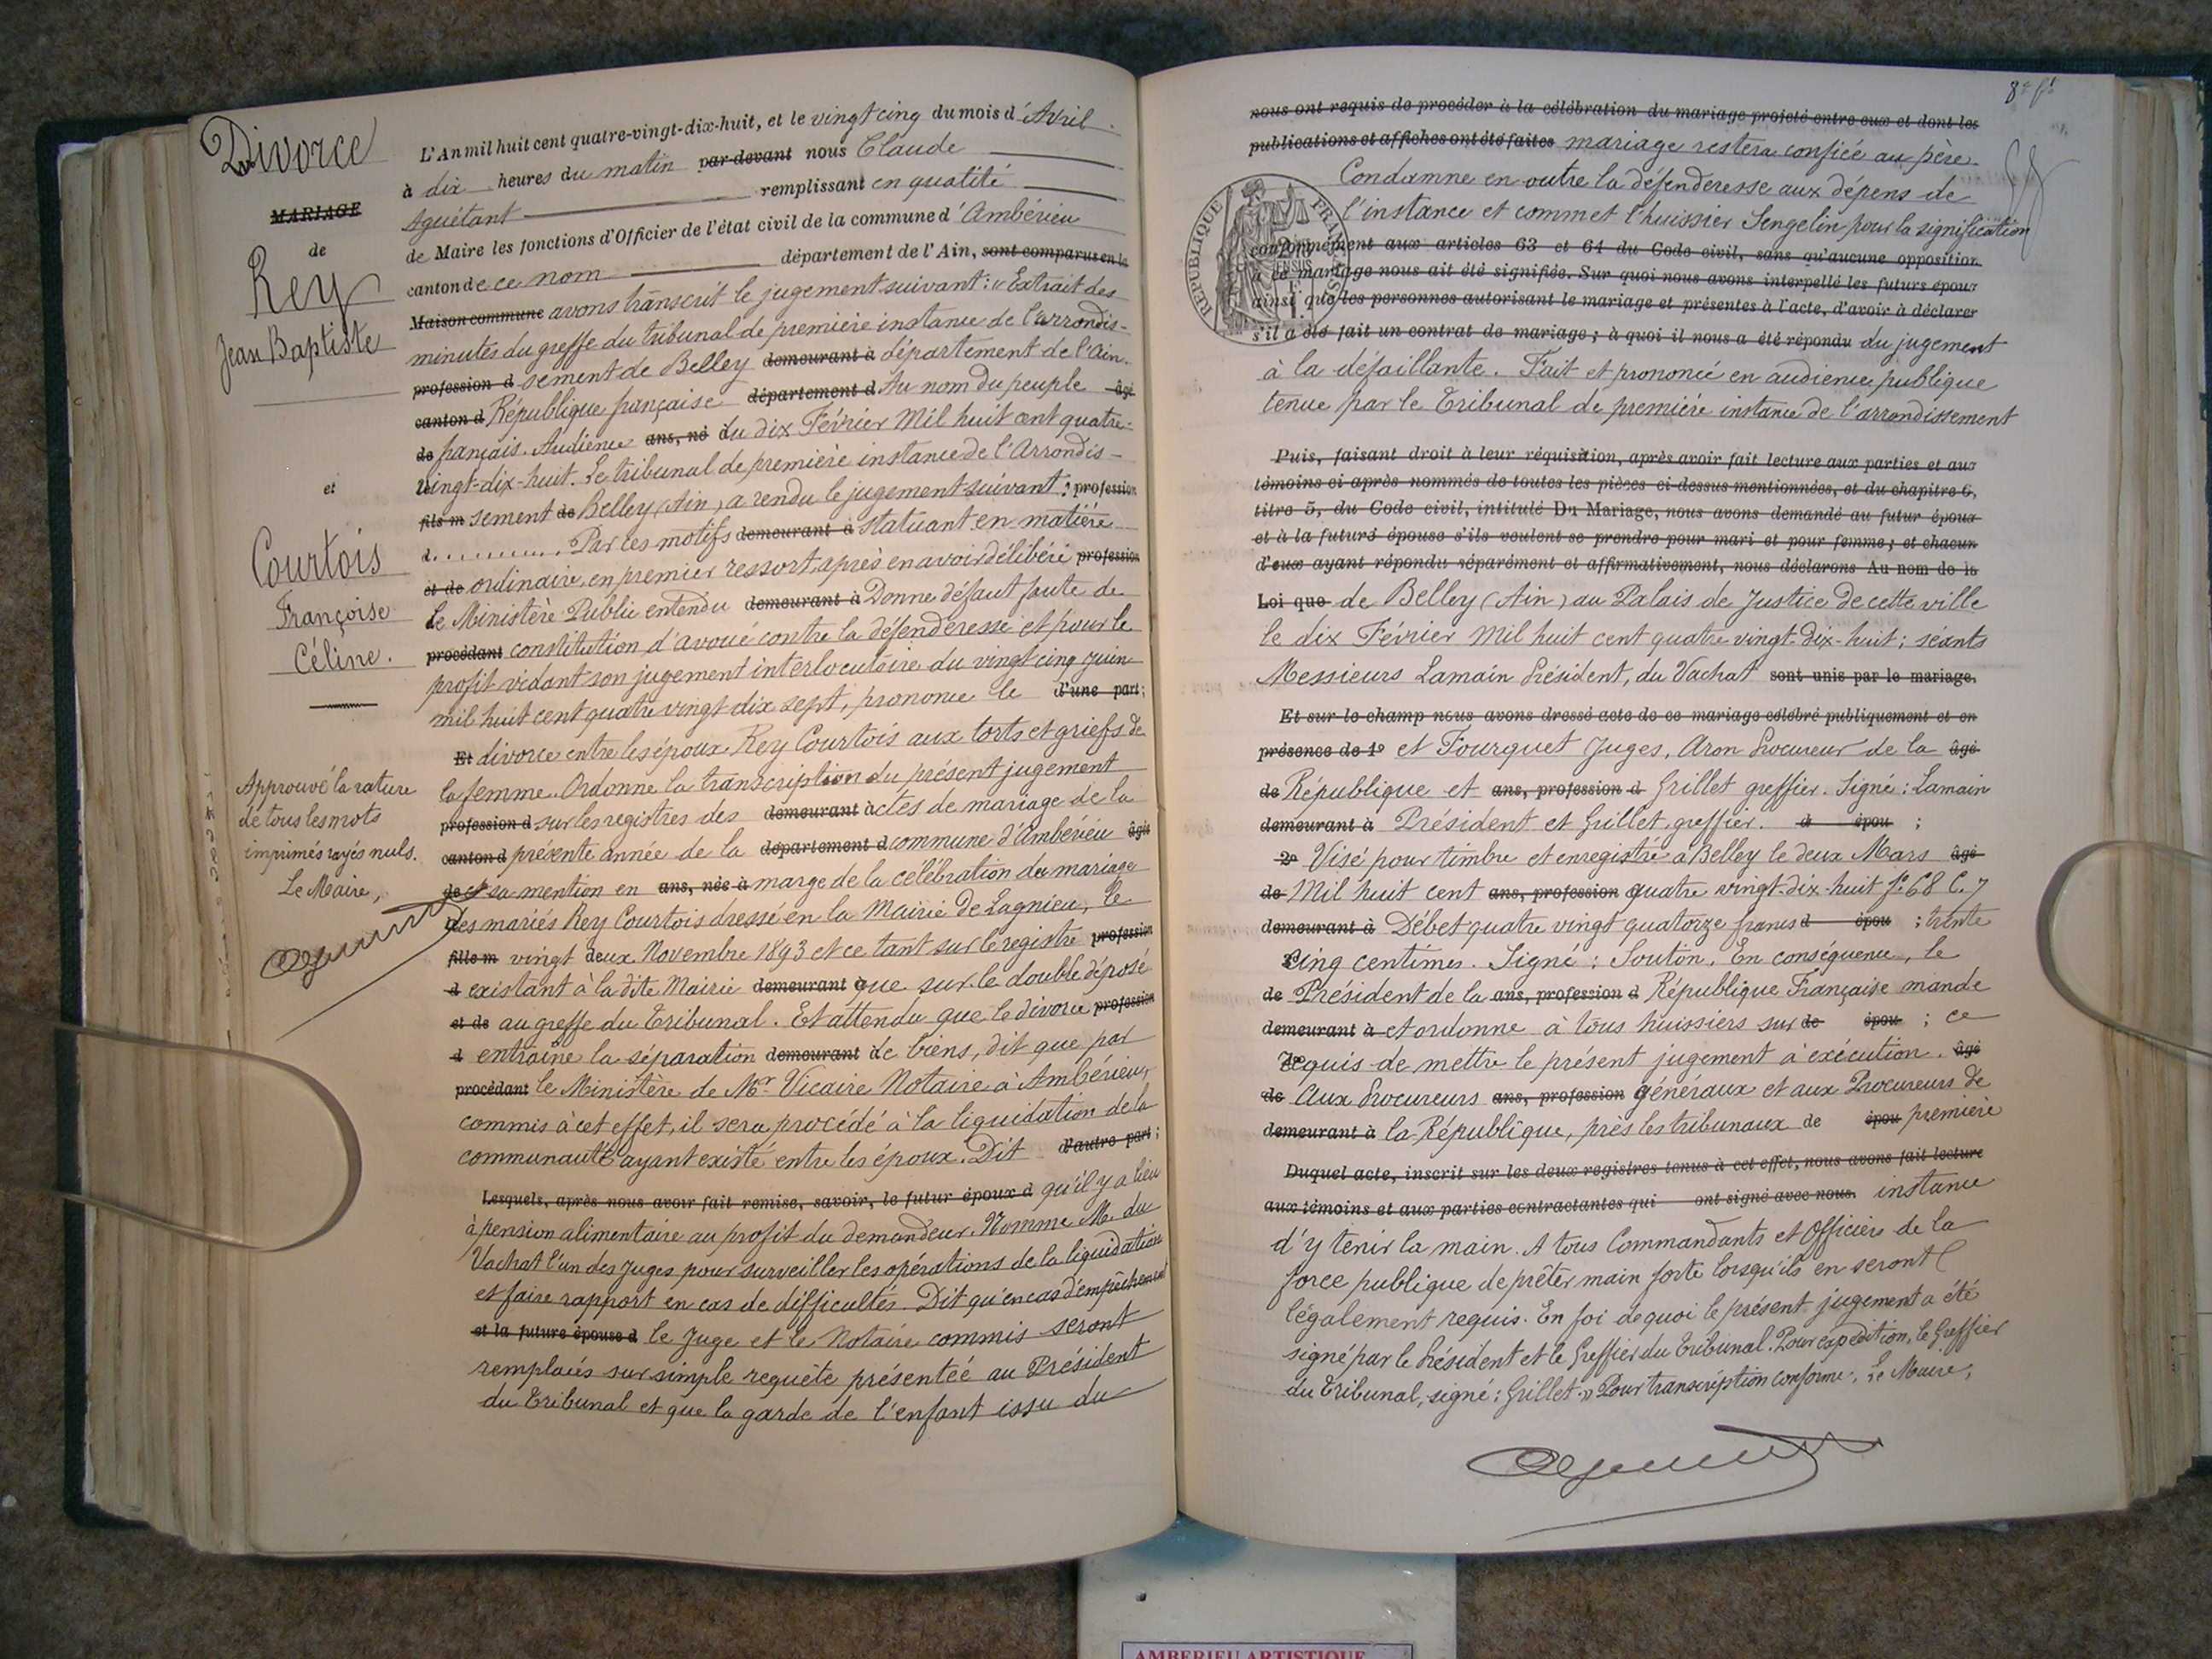 Divorce
MARIAGE
de
Rey
Jean Baptiste
et
Courtois
Françoise
Céline.
Approuvé la rature
de tous les mots
imprimés rayés nuls.
Le Maire,
L'An mil huit cent quatre-vingt-dix-huit, et le vingt cinq du mois d'Avril
à dix heures du matin par-devant nous Claude
Aguétant remplissant en qualité
de Maire les fonctions d'Officier de l'état civil de la commune d'Ambérieu
canton de ce nom département de l'Ain, sont comparus en la
Maison commune avons transcrit le jugement suivant : « Extrait des
minutes du greffe du tribunal de première instance de l'arrondis-
profession d sement de Belley demeurant à département de l'Ain.
canton d République française département d Au nom du peuple âgé
de français. Audience ans, né du dix Février Mil huit cent quatre-
vingt-dix-huit. Le tribunal de première instance de l'Arrondis-
fils m sement de Belley (Ain) a rendu le jugement suivant : profession
d ............ Par ces motifs demeurant à statuant en matière
et de ordinaire, en premier ressort, après en avoir délibéré profession
le Ministère Public entendu demeurant à Donne défaut faute de
procédant constitution d'avoué contre la défenderesse et pour le
profit vidant son jugement interlocutoire du vingt cinq Juin
mil huit cent quatre vingt dix sept, prononce le d'une part ;
Et divorce entre les époux Rey Courtois aux torts et griefs de
la femme. Ordonne la transcription du présent jugement
profession d sur les registres des demeurant à actes de mariage de la
canton d présente année de la département d commune d'Ambérieu âgée
de et sa mention en ans, née à marge de la célébration du mariage
des mariés Rey Courtois dressé en la Mairie de Lagnieu, le
fille m vingt deux Novembre 1893 et ce tant sur le registre profession
d existant à la dite Mairie demeurant à que sur le double déposé
et de au greffe du Tribunal. Et attendu que le divorce profession
d entraine la séparation demeurant de biens, dit que par
procédant le Ministère de Mr Vicaire Notaire à Ambérieu,
commis à cet effet, il sera procédé à la liquidation de la
communauté ayant existé entre les époux. Dit d'autre part ;
Lesquels, après nous avoir fait remise, savoir, le futur époux d qu'il y a lieu
à pension alimentaire au profit du demandeur. Nomme M. du
Vachat l'un des Juges pour surveiller les opérations de la liquidation
et faire rapport en cas de difficultés. Dit qu'en cas d'empêchement
et la future épouse d le Juge et le Notaire commis seront
remplacés sur simple requête présentée au Président
du Tribunal et que la garde de l'enfant issu du
8e ft
nous ont requis de procéder à la célébration du mariage projeté entre eux et dont les
publications et affiches ont été faites mariage restera confiée au père.
Condamne en outre la défenderesse aux dépens de
l'instance et commet l'huissier Sengelin pour la signification
REPUBLIQUE FRANÇAISE
conformément aux articles 63 et 64 du Code civil, sans qu'aucune opposition
à ce mariage nous ait été signifiée. Sur quoi nous avons interpellé les futurs époux
ainsi que les personnes autorisant le mariage et présentes à l'acte, d'avoir à déclarer
s'il a été fait un contrat de mariage ; à quoi il nous a été répondu du jugement
à la défaillante. Fait et prononcé en audience publique
tenue par le Tribunal de première instance de l'arrondissement
Puis, faisant droit à leur réquisition, après avoir fait lecture aux parties et aux
témoins ci-après nommés de toutes les pièces ci-dessus mentionnées, et du chapitre 6,
titre 5, du Code civil, intitulé Du Mariage, nous avons demandé au futur époux
et à la future épouse s'ils veulent se prendre pour mari et pour femme ; et chacun
d'eux ayant répondu séparément et affirmativement, nous déclarons Au nom de la
Loi que de Belley (Ain) au Palais de Justice de cette ville
le dix Février Mil huit cent quatre vingt-dix-huit ; séants
Messieurs Lamain Président, du Vachat sont unis par le mariage.
Et sur le champ nous avons dressé acte de ce mariage célébré publiquement et en
présence de 1° et Fourquet Juges, Aron Procureur de la âgé
de République et ans, profession d Grillet greffier. Signé : Lamain
demeurant à Président et Grillet, greffier. d épou ;
2° Visé pour timbre et enregistré à Belley le deux Mars âgé
de Mil huit cent ans, profession quatre vingt-dix-huit f° 68 C. 7
demeurant à Débet quatre vingt quatorze francs d épou ; trente
cinq centimes. Signé : Souton. En conséquence, le
de Président de la ans, profession d République Française mande
demeurant à et ordonne à tous huissiers sur de épou ; ce
requis de mettre le présent jugement à exécution. âgé
de Aux Procureurs ans, profession généraux et aux Procureurs de
demeurant à la République, près les tribunaux de épou première
Duquel acte, inscrit sur les deux registres tenus à cet effet, nous avons fait lecture
aux témoins et aux parties contractantes qui ont signé avec nous. instance
d'y tenir la main. A tous Commandants et Officiers de la
force publique de prêter main forte lorsqu'ils en seront
légalement requis. En foi de quoi le présent jugement a été
signé par le Président et le Greffier du Tribunal. Pour expédition, le Greffier
du Tribunal, signé : Grillet. » Pour transcription conforme, Le Maire,
AMBERIEU ARTISTIQUE